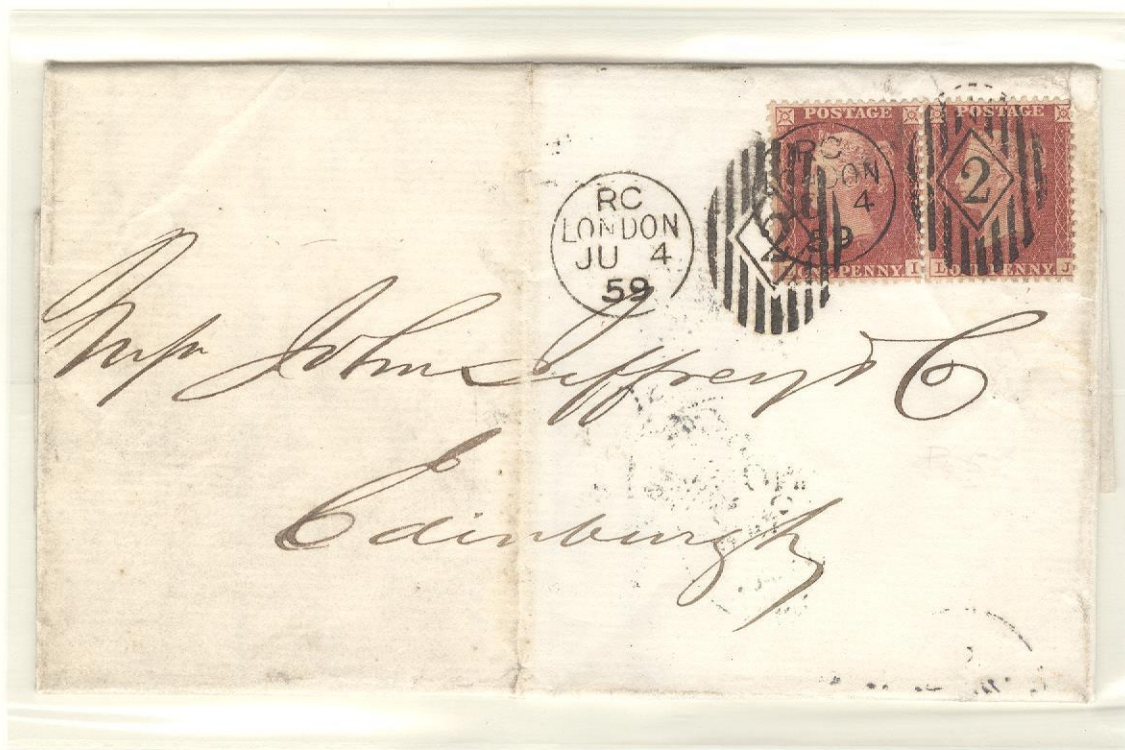 POSTAGE POSTAGE
RC
LONDON
JU 4
59
RC
LONDON
JU 4
59
2
2
PENNY I
PENNY J
Messrs John Jeffrey & Co
Edinburgh